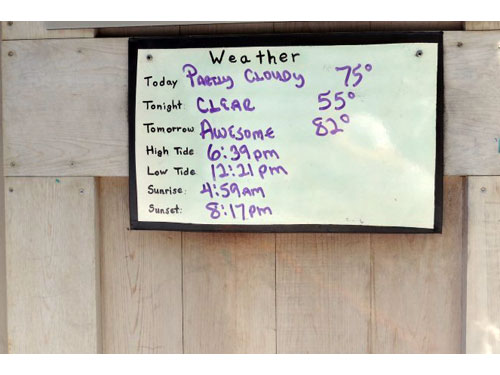 Weather
Today Partly Cloudy 75°
Tonight CLEAR 55°
Tomorrow AWESOME 82°
High Tide 6:39pm
Low Tide 12:21pm
Sunrise: 4:59AM
Sunset: 8:17pm